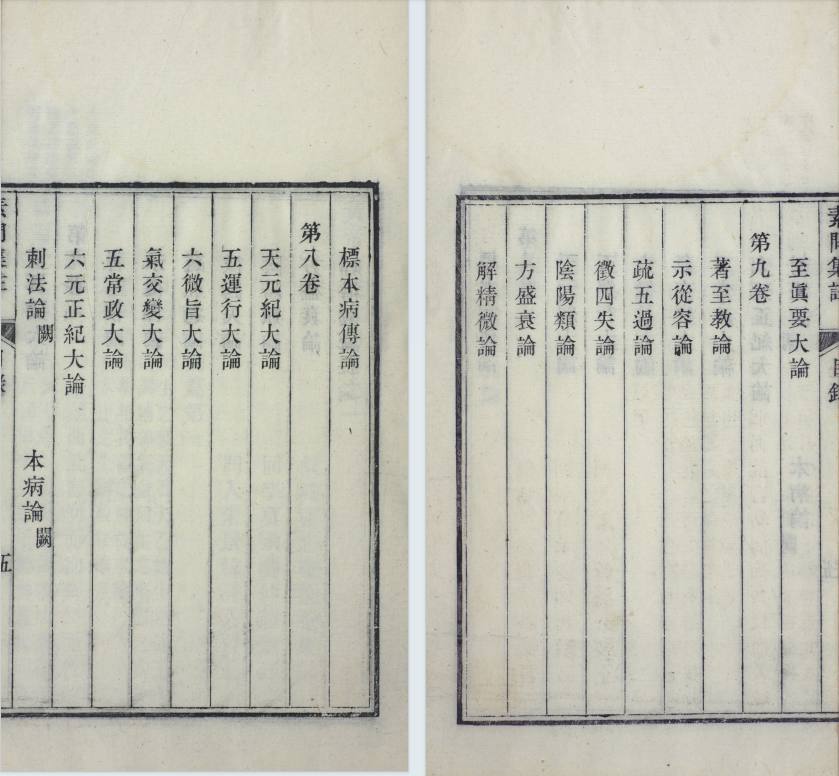 標本病傳論
第八卷
天元紀大論
五運行大論
六微旨大論
氣交變大論
五常政大論
六元正紀大論
刺法論闕　本病論闕
五
素問集註　目錄
至眞要大論
第九卷
著至教論
示從容論
疏五過論
徵四失論
陰陽類論
方盛衰論
解精微論